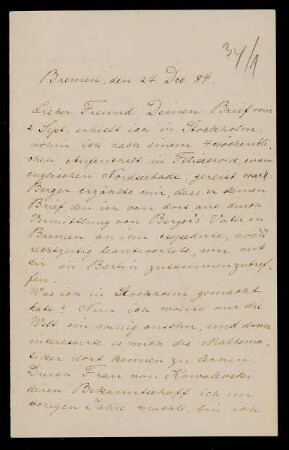 34/1
Bremen, den 24. Dec 84.
Lieber Freund Deinen Brief vom
2 Sept. erhielt ich in Stockholm,
wohin ich nach einem 4 wöchentli-
chen Aufenthalt in einem
englischen Nordseebade, gereist war.
Berger erzählte mir, dass er deinen
Brief den ich von dort aus durch
Vermittlung von Berger's Vater in
Bremen an ihn expedirte, noch
rechtzeitig beantwortete, um mit
dir in Berlin zusammenzutref-
fen.
Was ich in Stockholm gemacht
habe? Nun ich wollte mir die
Welt ein wenig ansehn, und dann
interessirte es mich die Mathema-
tiker dort kennen zu lernen
Durch Frau von Kowalevski
deren Bekanntschaft ich im
vorigen Jahre machte, bin ich